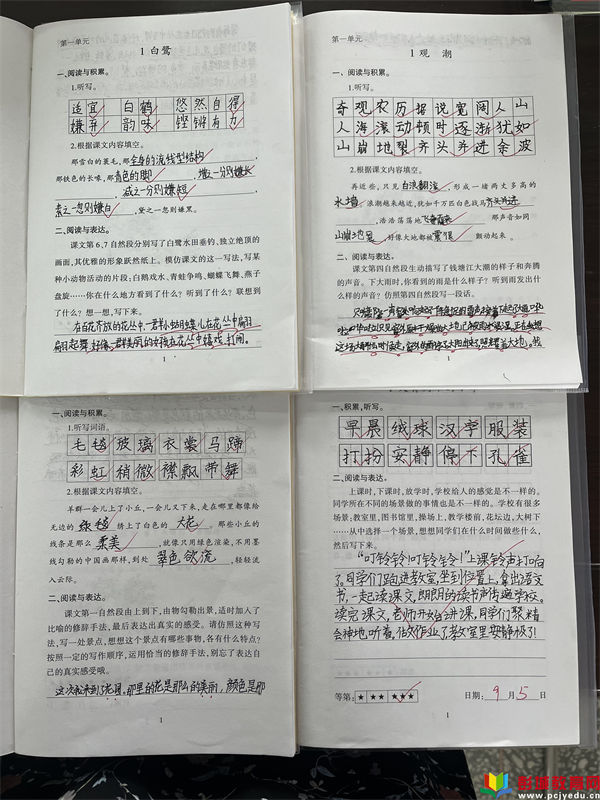 第一单元
1 白鹭
一、阅读与积累。
1.听写。
适宜 白鹤 悠然自得
嫌弃 韵味 铿锵有力
2.根据课文内容填空。
那雪白的蓑毛,那全身的流线型结构,
那铁色的长喙,那青色的脚,增之一分则嫌长
,减之一分则嫌短,
素之一忽则嫌白,黛之一忽则嫌黑。
二、阅读与表达。
课文第6、7自然段分别写了白鹭水田垂钓、独立绝顶的
画面,其优雅的形象跃然纸上。模仿课文的这一写法,写某
种小动物活动的片段:白鹅戏水、青蛙争鸣、蝴蝶飞舞、燕子
盘旋……你在什么地方看到了什么?听到了什么?联想到
了什么?想一想,写下来。
在百花齐放的花丛中,一群小蝴蝶儿在花丛中翩翩
起舞,好像一群美丽的女孩在花丛中嬉戏打闹。
1
第一单元
1 观 潮
一、阅读与积累。
1.听写。
奇观农历据说宽阔人山
人海滚动顿时逐渐犹如
山崩地裂齐头并进余波
2.根据课文内容填空。
再近些,只见白浪翻滚,形成一堵两丈多高的
水墙。浪潮越来越近,犹如千万匹白色战马齐头并进
,浩浩荡荡地飞奔而来;那声音如同
山崩地裂,好像大地都被震得颤动起来。
二、阅读与表达。
课文第四自然段生动描写了钱塘江大潮的样子和奔腾
的声音。下大雨时,你看到的雨是什么样子?听到雨发出什
么样的声音?仿照第四自然段写一段话。
1
一、阅读与积累。
1.听写词语。
毛毯玻璃衣裳马蹄
彩虹稍微襟飘带舞
2.根据课文内容填空。
羊群一会儿上了小丘,一会儿又下来,走在哪里都像给
无边的绿毯绣上了白色的大花。那些小丘的
线条是那么柔美,就像只用绿色渲染,不用墨
线勾勒的中国画那样,到处翠色欲流,轻轻流
入云际。
二、阅读与表达。
课文第一自然段由上到下,由物勾勒出景,适时加入了
比喻的修辞手法,最后表达出真实的感受。请仿照这种写
法,写一处景点,想想这个景点有哪些事物,各有什么特点?
按照一定的写作顺序,运用恰当的修辞手法,别忘了表达自
己的真实感受哦。
那里的花是那么的美丽,颜色是那
1
一、积累,听写。
早晨 绒球 汉字 服装
打扮 安静 停下 孔雀
二、阅读与表达。
上课时,下课时,放学时,学校给人的感觉是不一样的。
同学所在不同的场景做的事情也是不一样的。学校有很多
场景:教室里,图书馆里,操场上,教学楼前,花坛边,大树下
……从中选择一个场景,想想同学们在什么时间做些什么,
然后写下来。
“叮铃铃!叮铃铃!”上课铃声打响
了。同学们跑进教室,坐到位置上,拿出语文
书,一起读课文,朗朗的读书声传遍学校。
读完课文,老师开始讲课,同学们聚精
会神地听着,教室里安静极了!
等第:★ ★★ ★★★ 日期:9月5日
1
射城教育网
www.pcjyedu.cn